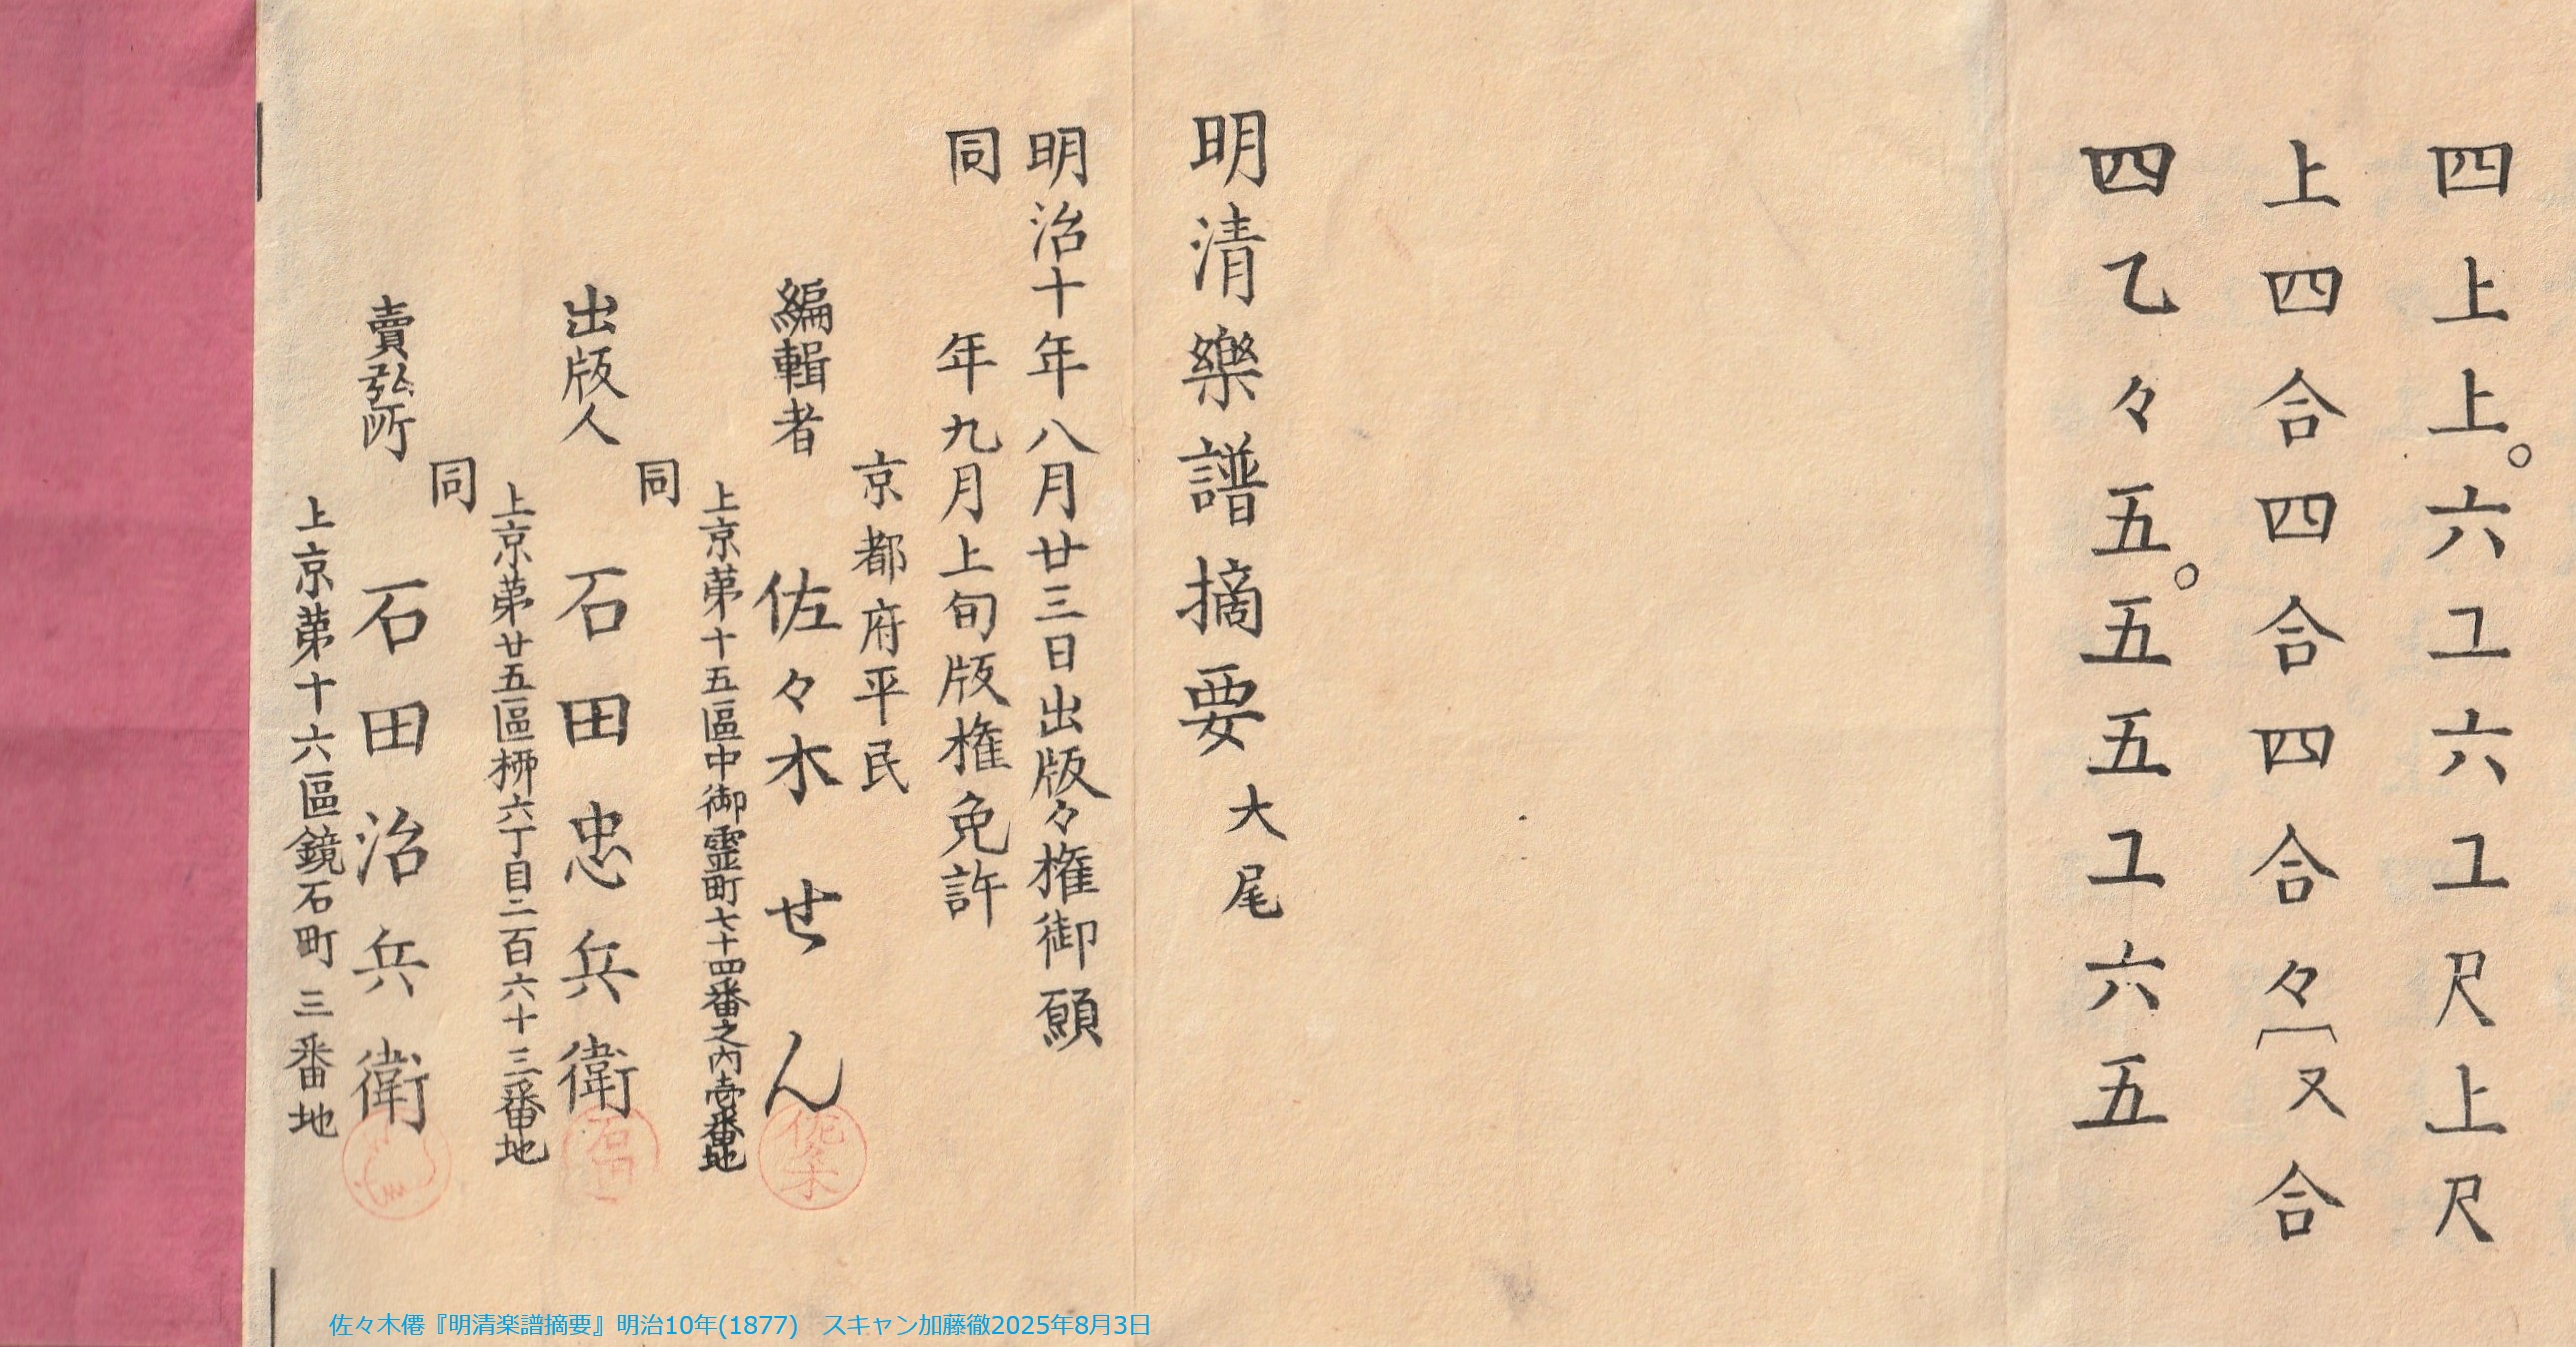 四上上。六エ六エ尺上尺
上四合四合四合々又合
四乙々五。五五エ六五
明清樂譜摘要大尾
明治十年八月廿三日出版々権御願
同年九月上旬版権免許
京都府平民
編輯者 佐々木せん
佐々木
上京苐十五區中御霊町七十四番之内壱番地
同
出版人 石田忠兵衛
石田
上京苐廿五區栁六丁目二百六十三番地
同
賣弘所 石田治兵衛
上京苐十六區鏡石町三番地
佐々木僊『明清楽譜摘要』明治10年(1877) スキャン加藤徹2025年8月3日